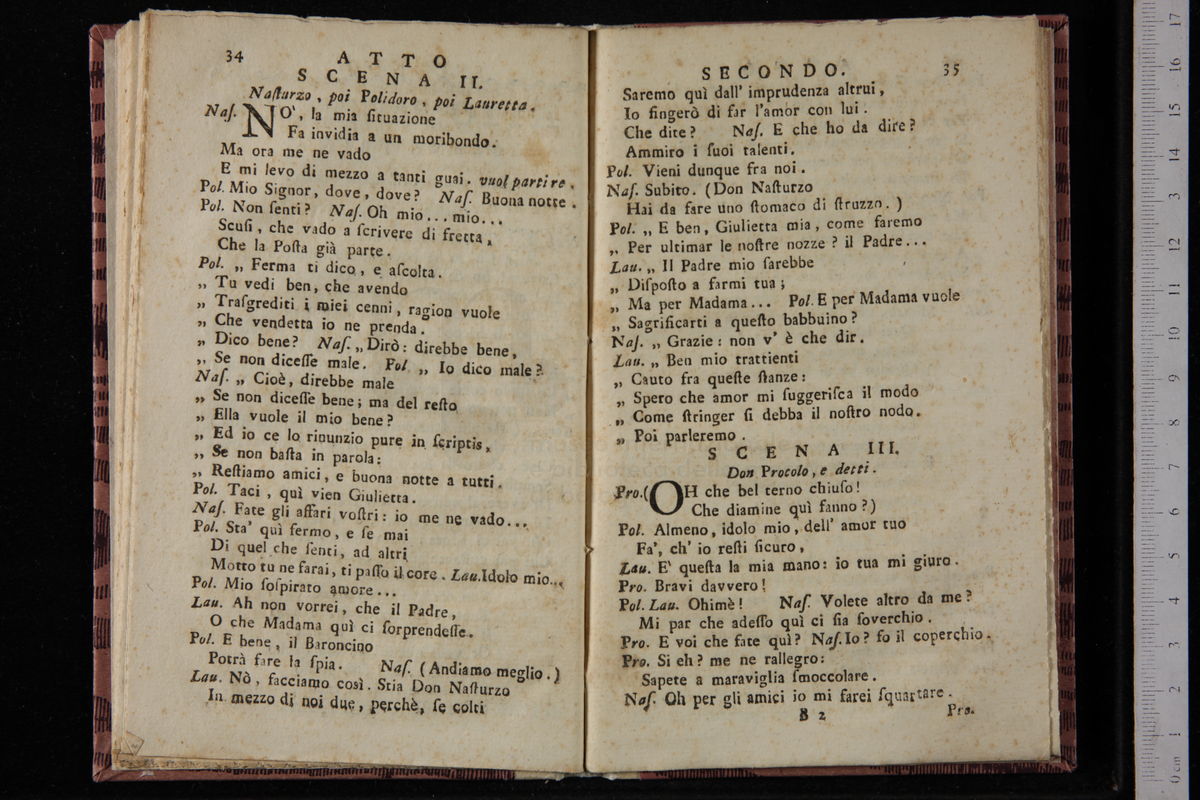 34
ATTO
SCENA II.
Naſturzo, poi Polidoro, poi Lauretta.
Naſ. NO', la mia ſituazione
Fa invidia a un moribondo.
Ma ora me ne vado
E mi levo di mezzo a tanti guai. vuol partire.
Pol. Mio Signor, dove, dove? Naſ. Buona notte.
Pol. Non ſenti? Naſ. Oh mio... mio...
Scuſi, che vado a ſcrivere di fretta,
Che la Poſta già parte.
Pol. „ Ferma ti dico, e aſcolta.
„ Tu vedi ben, che avendo
„ Traſgrediti i miei cenni, ragion vuole
„ Che vendetta io ne prenda.
„ Dico bene? Naſ. „ Dirò: direbbe bene,
„ Se non diceſſe male. Pol. „ Io dico male?
Naſ. „ Cioè, direbbe male
„ Se non diceſſe bene; ma del reſto
„ Ella vuole il mio bene?
„ Ed io ce lo rinunzio pure in ſcriptis,
„ Se non baſta in parola:
„ Reſtiamo amici, e buona notte a tutti.
Pol. Taci, quì vien Giulietta.
Naſ. Fate gli affari voſtri: io me ne vado...
Pol. Sta' quì fermo, e ſe mai
Di quel che ſenti, ad altri
Motto tu ne farai, ti paſſo il core. Lau. Idolo mio...
Pol. Mio ſoſpirato amore...
Lau. Ah non vorrei, che il Padre,
O che Madama quì ci ſorprendeſſe.
Pol. E bene, il Baroncino
Potrà fare la ſpia. Naſ. (Andiamo meglio.)
Lau. Nò, facciamo così. Stia Don Naſturzo
In mezzo di noi due, perchè, ſe colti
SECONDO. 35
Saremo quì dall' imprudenza altrui,
Io fingerò di far l'amor con lui.
Che dite? Naſ. E che ho da dire?
Ammiro i ſuoi talenti.
Pol. Vieni dunque fra noi.
Naſ. Subito. (Don Naſturzo
Hai da fare uno ſtomaco di ſtruzzo.)
Pol. „ E ben, Giulietta mia, come faremo
„ Per ultimar le noſtre nozze? il Padre...
Lau. „ Il Padre mio ſarebbe
„ Diſpoſto a farmi tua;
„ Ma per Madama... Pol. E per Madama vuole
„ Sagrificarti a queſto babbuino?
Naſ. „ Grazie: non v' è che dir.
Lau. „ Ben mio trattienti
„ Cauto fra queſte ſtanze:
„ Spero che amor mi ſuggeriſca il modo
„ Come ſtringer ſi debba il noſtro nodo.
„ Poi parleremo.
SCENA III.
Don Procolo, e detti.
Pro. (OH che bel terno chiuſo!
Che diamine quì fanno?)
Pol. Almeno, idolo mio, dell' amor tuo
Fa', ch' io reſti ſicuro,
Lau. E' queſta la mia mano: io tua mi giuro.
Pro. Bravi davvero!
Pol. Lau. Ohimè! Naſ. Volete altro da me?
Mi par che adeſſo quì ci ſia ſoverchio.
Pro. E voi che fate quì? Naſ. Io? fo il coperchio.
Pro. Si eh? me ne rallegro:
Sapete a maraviglia ſmoccolare.
Naſ. Oh per gli amici io mi farei ſquartare.
B 2 Pro.
0 cm 1 2 3 4 5 6 7 8 9 10 11 12 13 14 15 16 17